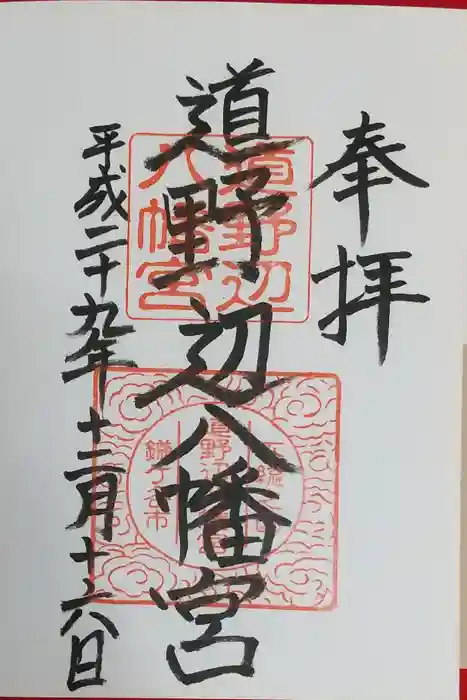 奉拝
道野辺八幡宮
平成二十九年十二月十六日
道野辺
八幡宮
道野辺
鎌ケ谷市